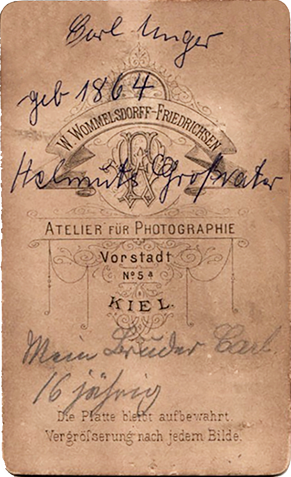 Carl Unger
geb 1864
W. WOMMELSDORFF-FRIEDRICHSEN
Helmuts Großvater
ATELIER FÜR PHOTOGRAPHIE
Vorstadt
No 5a
KIEL.
Mein Bruder Carl.
16 jährig
Die Platte bleibt aufbewahrt.
Vergröfserung nach jedem Bilde.